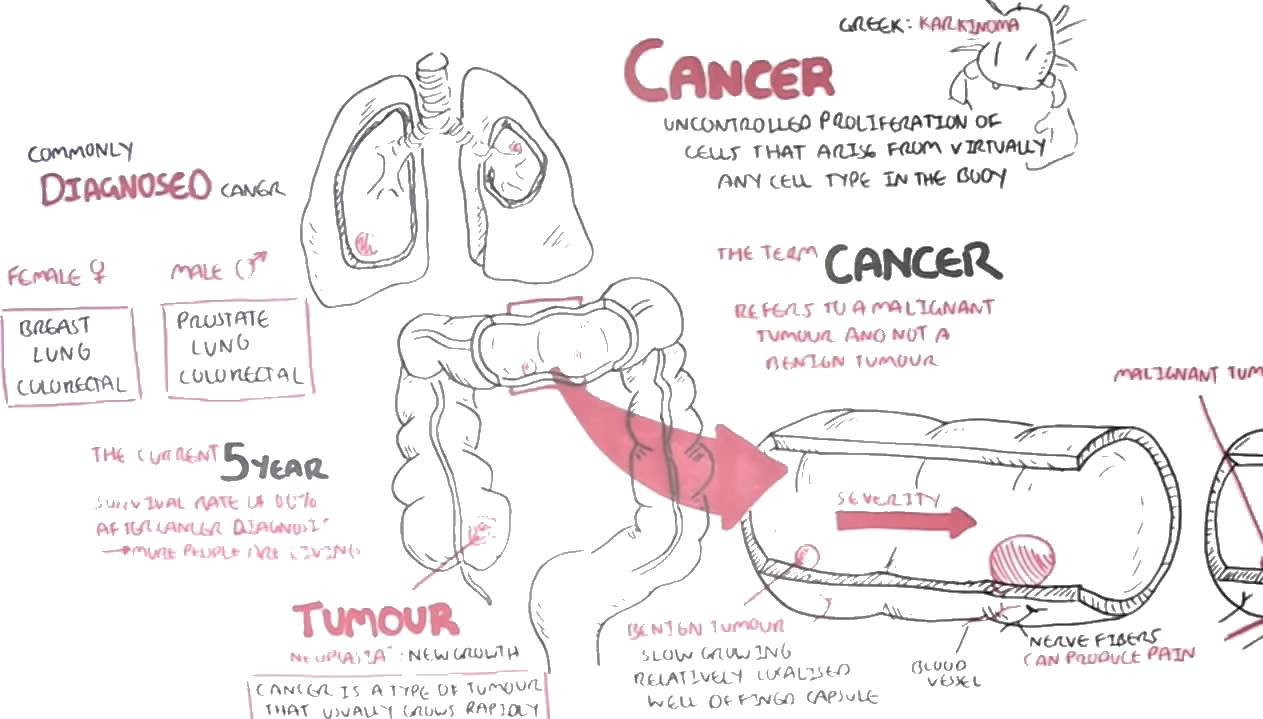 GREEK: KARKINOMA
CANCER
UNCONTROLLED PROLIFERATION OF
CELLS THAT ARISE FROM VIRTUALLY
ANY CELL TYPE IN THE BODY
COMMONLY
DIAGNOSED CANER
FEMALE ♀
MALE ♂
BREAST
LUNG
COLORECTAL
PROSTATE
LUNG
COLORECTAL
THE TERM CANCER
REFERS TO A MALIGNANT
TUMOUR AND NOT A
BENIGN TUMOUR
THE CURRENT 5 YEAR
SURVIVAL RATE OF
AFTER CANCER DIAGNOSIS
→ MORE PEOPLE ARE LIVING
TUMOUR
NEOPLASIA : NEW GROWTH
CANCER IS A TYPE OF TUMOUR
THAT USUALLY GROWS RAPIDLY
MALIGNANT TUM
SEVERITY
BENIGN TUMOUR
SLOW GROWING
RELATIVELY LOCALISED
WELL DEFINED CAPSULE
BLOOD
VESSEL
NERVE FIBERS
CAN PRODUCE PAIN